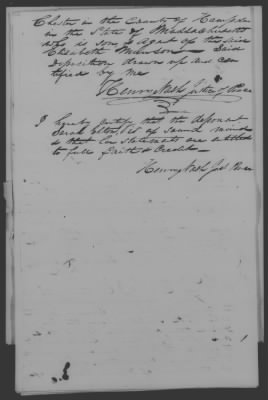 Chester in the County of Hampden
in the State of Massachusetts
who is son & agent of the said
Elizabeth Munson — Said
deposition drawn up and cer
tified by me
Henry Nash Justice of Peace
I hereby certify that the deponent
Sarah is of sound mind
& that her statements are entitled
to full faith & Credit —
Henry Nash Jus Peace